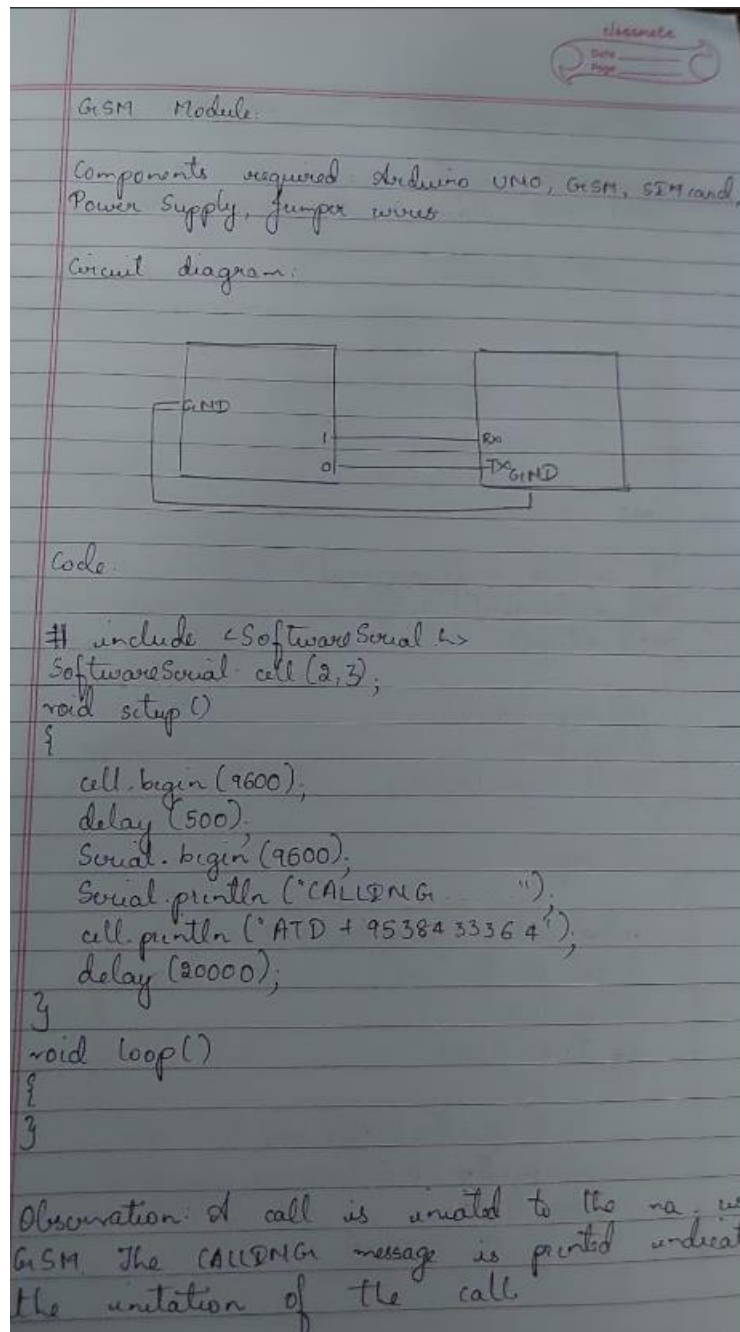 classmate
Date
Page
GSM Module:
Components required: Arduino UNO, GSM, SIM card,
Power Supply, Jumper wires
Circuit diagram:
GND
1 Rx
0 TX GND
Code:
# include <SoftwareSerial.h>
SoftwareSerial cell (2,3);
void setup ()
{
cell.begin (9600);
delay (500);
Serial.begin (9600);
Serial.println ("CALLING ");
cell.println ("ATD + 9538433364");
delay (20000);
}
void loop()
{
}
Observation: A call is to the no.
GSM. The CALLING message is printed
the of the call